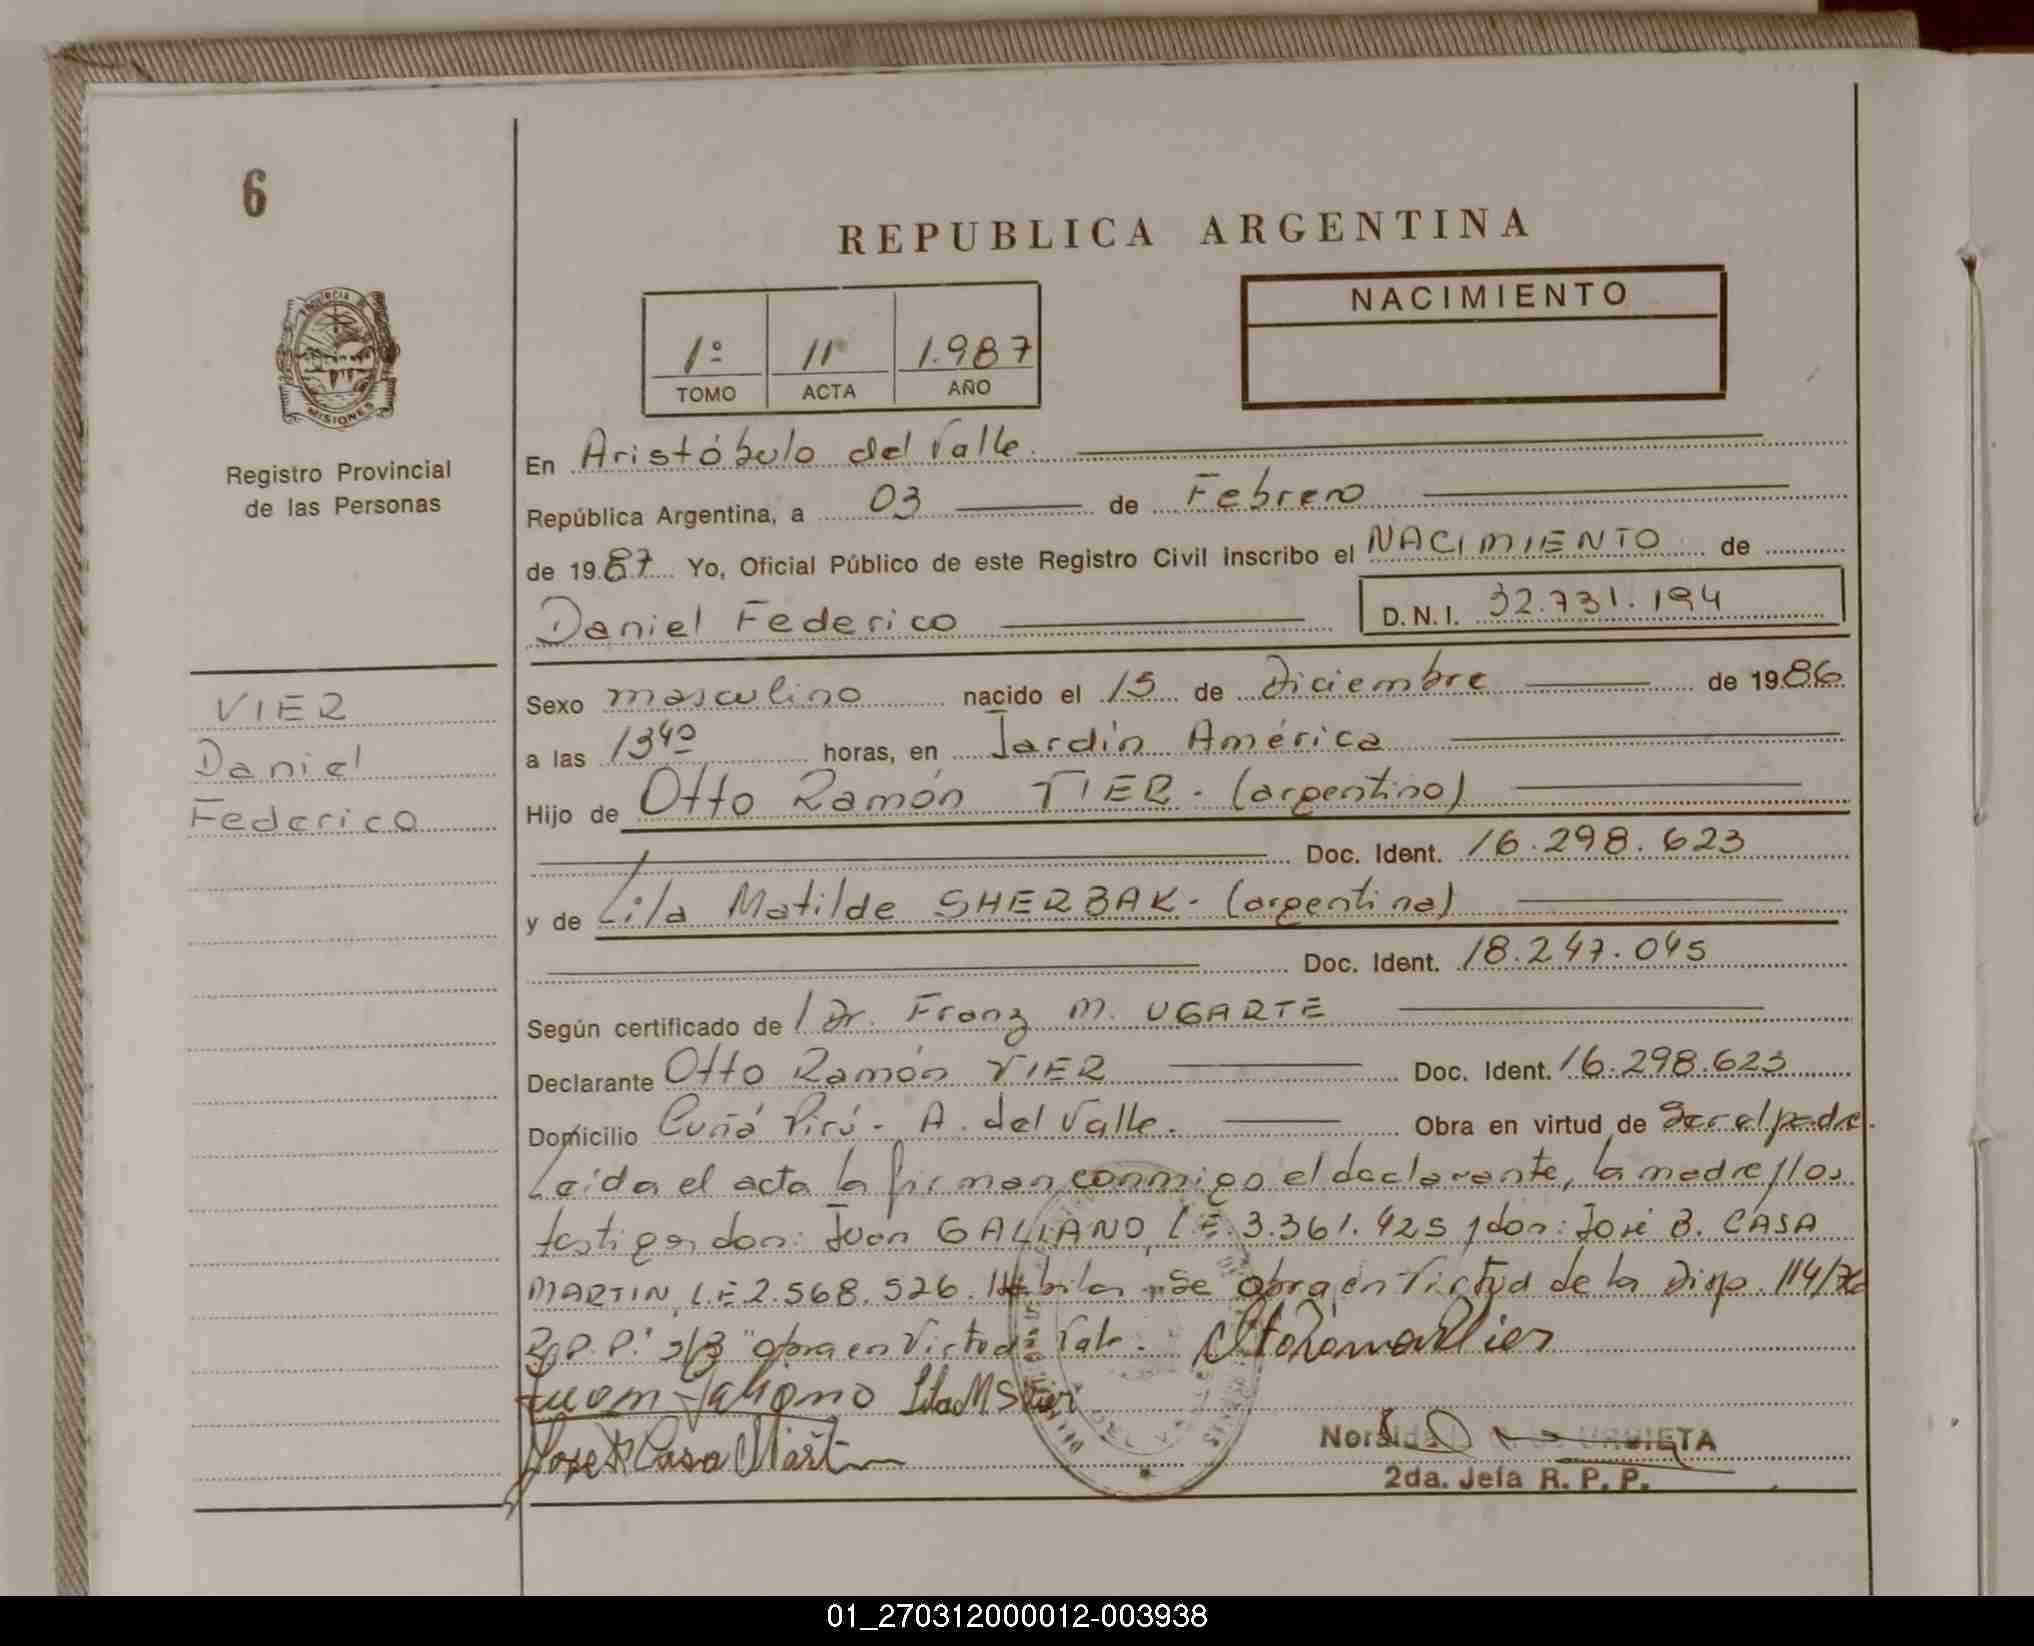 6
REPUBLICA ARGENTINA
PROVINCIA DE MISIONES
Registro Provincial
de las Personas
1º 11 1.987
TOMO ACTA AÑO
NACIMIENTO
En Aristóbulo del Valle.
República Argentina, a 03 de Febrero
de 1987 Yo, Oficial Público de este Registro Civil inscribo el NACIMIENTO de
Daniel Federico D.N.I. 32.731.194
VIER
Daniel
Federico
Sexo masculino nacido el 15 de Diciembre de 1986
a las 13⁴⁰ horas, en Jardín América
Hijo de Otto Ramón VIER - (argentino)
Doc. Ident. 16.298.623
y de Lila Matilde SHERBAK - (argentina)
Doc. Ident. 18.247.045
Según certificado de / Dr. Franz M. UGARTE
Declarante Otto Ramón VIER Doc. Ident. 16.298.623
Domicilio Cuñá Pirú - A. del Valle. Obra en virtud de Ser el padre.
Leída el acta la firman conmigo el declarante, la madre y los
testigos don: Juan GALIANO, L.E. 3.361.425 y don: José B. CASA
MARTIN, L.E. 2.568.526. Hábiles. Se obra en Virtud de la Disp. 114/
R.P.P. s/B "obra en Virtud" Vale.
Juan Galiano Lila M S Vier
Jose B Casa Martin
URBIETA
2da. Jefa R. P. P.
01_270312000012-003938